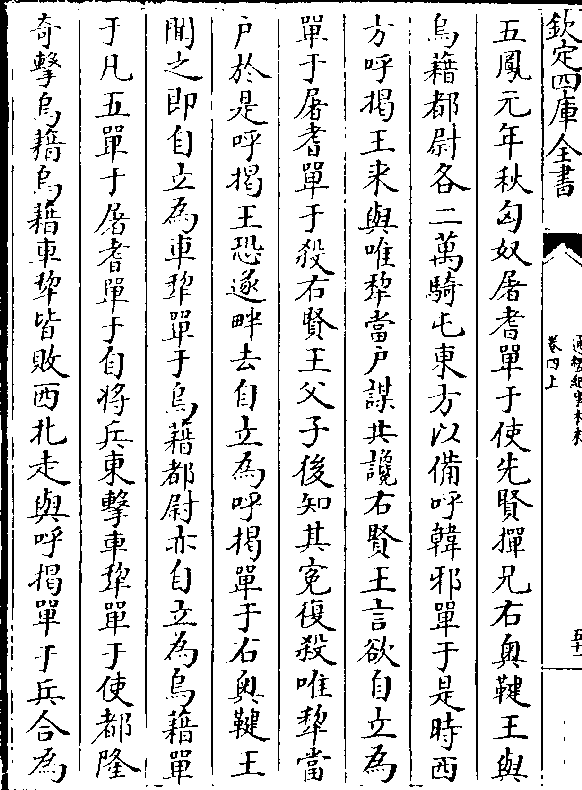 欽定四庫全書
卷四上
五鳳元年秋匈奴屠耆單于使先賢撣兄右奥鞬王與
烏藉都尉各二萬騎屯東方以備呼韓邪單于是時西
方呼揭王来與唯犂當户謀共讒右賢王言欲自立為
單于屠耆單于殺右賢王父子後知其寃復殺唯犂當
户於是呼揭王恐遂畔去自立為呼揭單于右奥鞬王
聞之即自立為車犂單于烏藉都尉亦自立為烏藉單
于凡五單于屠耆單于自將兵東擊車犂單于使都隆
奇擊烏藉烏藉車犂皆敗西北走與呼揭單于兵合為